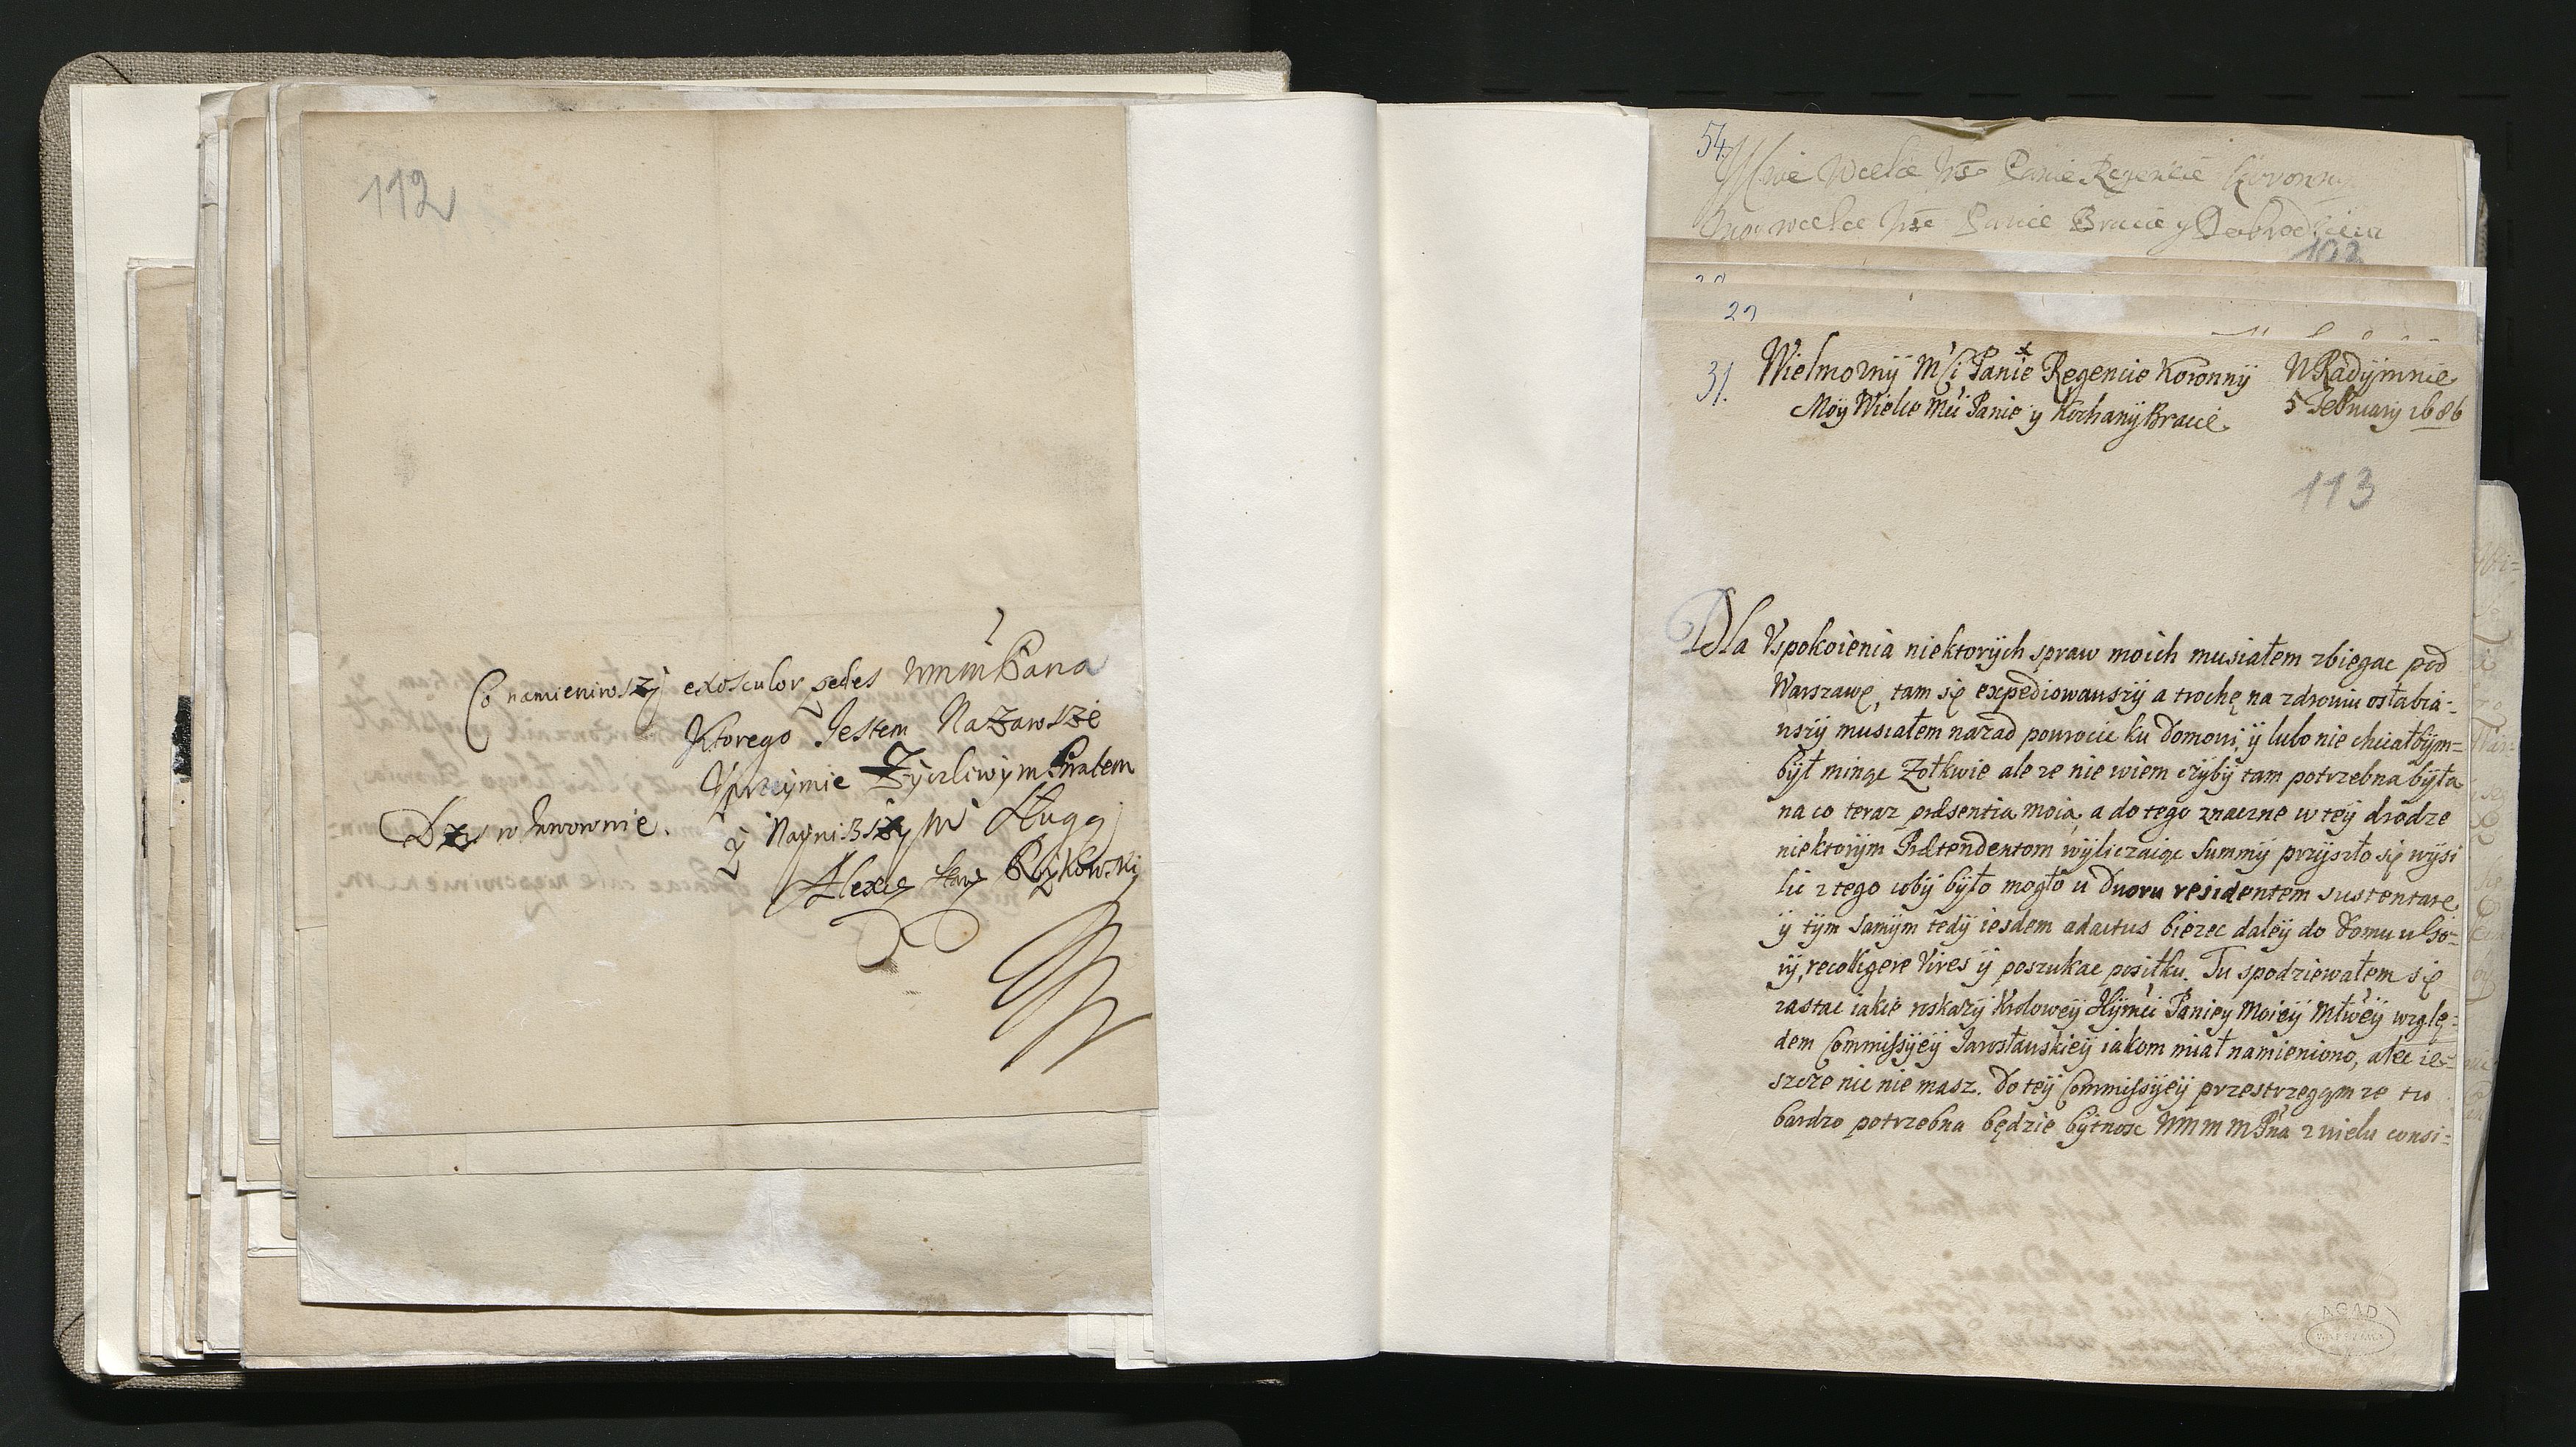 112
Co namieniwszÿ exosculor pedes WmmPana
Ktorego Jestem Na Zawsze
Vprzeymie Zyczliwym Bratem
Dat w Jaworowie.
y Nayniszszym Sługą
Rzykowskÿ
54.
Wielce Mse Panie Regencie Koronny
moy wielce Mse Panie Bracie y Dobrodzieiu
103
29
31. Wielmoznÿ Mći Panie Regencie Koronnÿ
Móÿ Wielce Mći Panie ÿ Kochanÿ Bracie
W Radÿmnie
5 Februarÿ 1686
113
Dla Vspokoienia niektorÿch spraw moich musiałem zbiegac pod
Warszawę, tam się expediowawszÿ a trochę na zdrowiu osłabia-
wszÿ musiałem nazad powrocic ku Domowi, ÿ lubo nie chciałbÿm-
bÿł minąc Zołkwie ale ze nie wiem czÿbÿ tam potrzebna bÿła
na co teraz præsentia moia, a do tego znaczne w teÿ drodze
niektorÿm Prætendentom wÿliczaiąc Summÿ przÿszło się wÿsi
lic z tego cobÿ bÿło mogło u Dworu residentem sustentare
ÿ tÿm samÿm tedÿ iesdem adactus biezec daleÿ do Domu w Go-
rÿ, recolligere Vires ÿ poszukac positku. Tu spodziewałem się
zastac iakie wskazÿ Kroloweÿ Jeÿmći Paniey Moieÿ Młweÿ wzglę-
dem Commissÿeÿ Jarosławskieÿ iakom miał namieniono, alec ie-
szcze nic nie masz. Do teÿ Commissÿeÿ przestrzegam ze tu
bardzo potrzebna będzie bÿtnosc WMMMPna z wielu consi-
AGAD
WARSZAWA